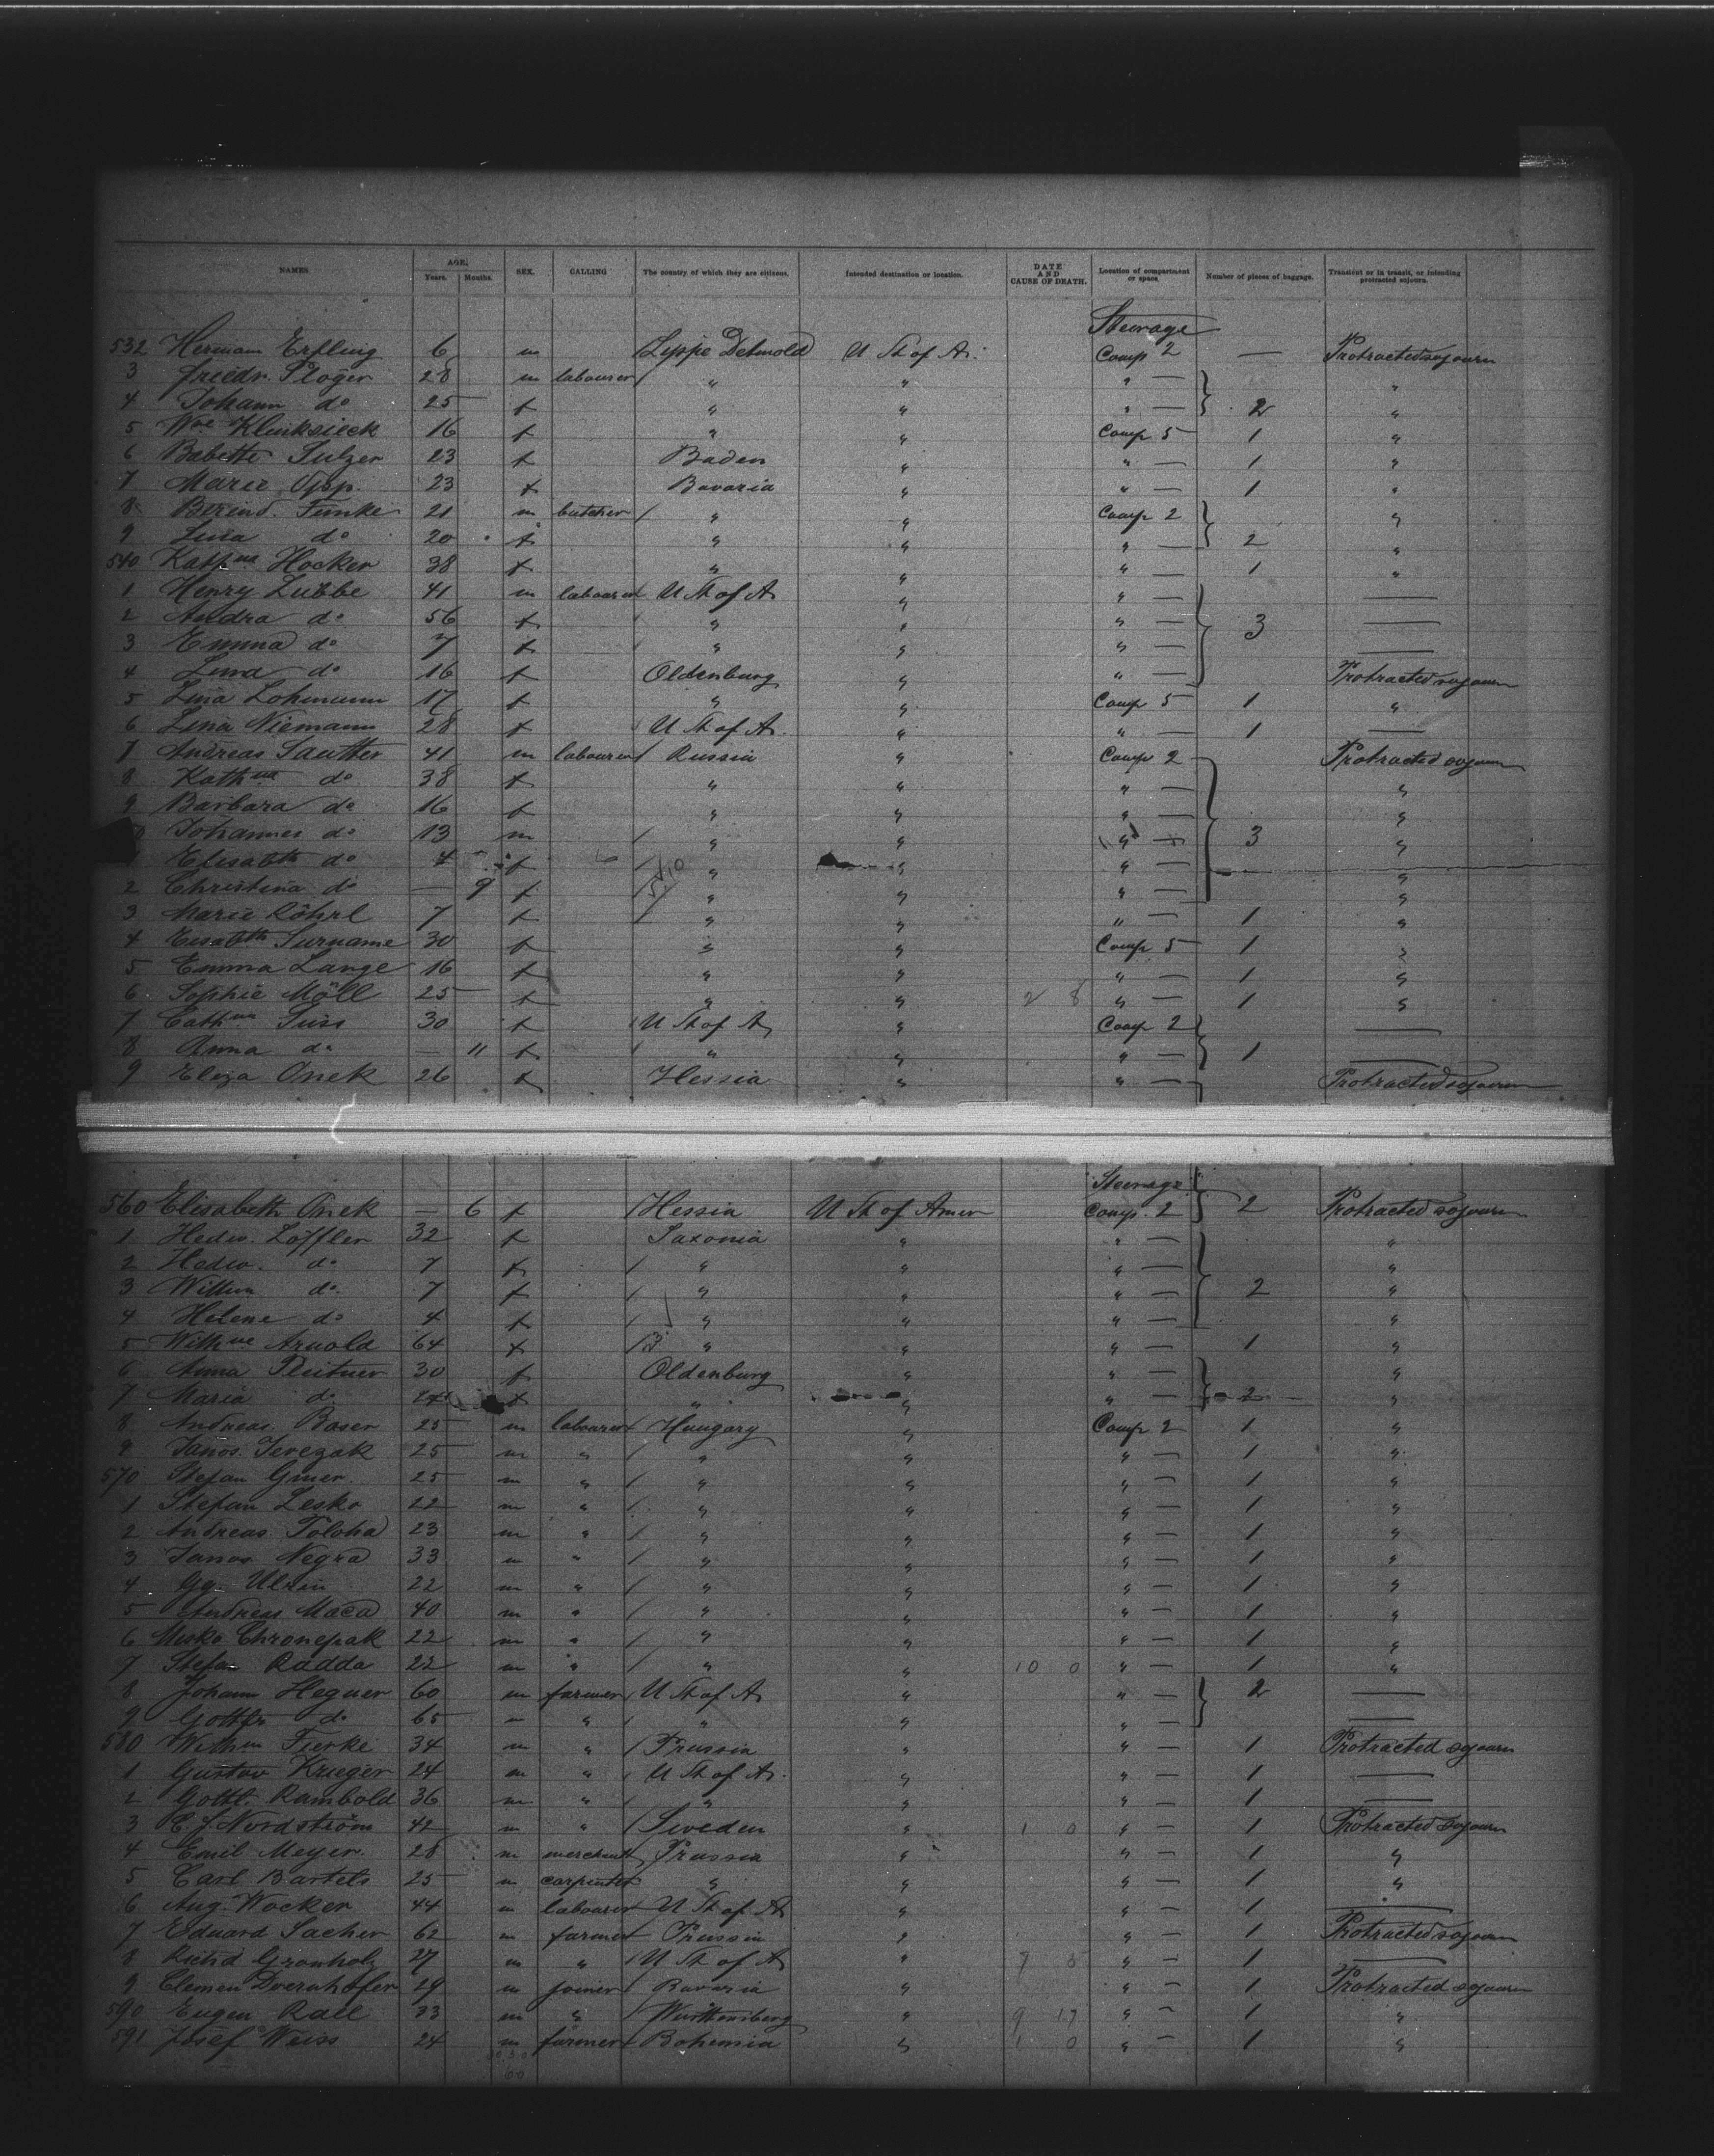 NAMES AGE. Years. Months. SEX. CALLING The country of which they are citizens. Intended destination or location. DATE AND CAUSE OF DEATH. Location of compartment or space. Number of pieces of baggage. Transient or in transit, or intending protracted sojourn.
Steerage
532 Hermann Erfling 6 m Lippe Detmold U St of A. Comp 2 — Protracted sojourn
3 Friedr. Plöger 28 m labourer " " " — "
4 Johann do 25 f " " " — 2 "
5 Wne Klinksieck 16 f " " Comp 5 1 "
6 Babette Sulzer 23 f Baden " " — 1 "
7 Marie Opp. 23 f Bavaria " " — 1 "
8 Berend. Funke 21 m butcher " " Comp 2 "
9 Lina do 20 f " " " — 2 "
540 Kathna Hocker 38 f " " " — 1 "
1 Henry Lübbe 41 m labourer U St of A " " — —
2 Andra do 56 f " " " — 3 —
3 Emma do 7 f " " " — —
4 Lina do 16 f Oldenburg " " — Protracted sojourn
5 Lina Lohmann 17 f " " Comp 5 1 "
6 Lina Niemann 28 f U St of A. " " — 1 —
7 Andreas Sautter 41 m labourer Russia " Comp 2 Protracted sojourn
8 Kathna do 38 f " " " — "
9 Barbara do 16 f " " " — "
Johannes do 13 m " " " — 3 "
Elisabth do 4 f " " " — "
2 Christina do — 9 f " " " — "
3 Marie Röhrl 7 f " " " — 1 "
4 Elisabth Surname 30 f " " Comp 5 1 "
5 Emma Lange 16 f " " " — 1 "
6 Sophie Möll 25 f " " 2 8 " — 1 "
7 Cathna Suss 30 f U St of A " Comp 2 —
8 Anna do — 11 f " " " — 1 —
9 Eliza Onek 26 f Hessia " " — Protracted sojourn
Steerage
560 Elisabeth Onek — 6 f Hessia U St of Amer Comp. 2 2 Protracted sojourn
1 Hedw. Löffler 32 f Saxonia " " — "
2 Hedw. do 7 f " " " — "
3 Willm do 7 f " " " — 2 "
4 Helene do 4 f " " " — "
5 Withne Arnold 64 f " " " — 1 "
6 Anna Pleitner 30 f Oldenburg " " — "
7 Maria do f " " " — 2 "
8 Andreas Baser 25 m labourer Hungary " Comp 2 1 "
9 Janos. Jerezak 25 m " " " " — 1 "
570 Stefan Gmer. 25 m " " " " — 1 "
1 Stefan Lesko 22 m " " " " — 1 "
2 Andreas Toloha 23 m " " " " — 1 "
3 Janos Negra 33 m " " " " — 1 "
4 Gg. Ulrin 22 m " " " " — 1 "
5 Andreas Maca 40 m " " " " — 1 "
6 Misko Chronepak 22 m " " " " — 1 "
7 Stefan Radda 22 m " " " 10 0 " — 1 "
8 Johann Hegner 60 m farmer U St of A " " — 2 —
9 Gottfr do 65 m " " " " — —
580 Withm Fierke 34 m " Prussia " " — 1 Protracted sojourn
1 Gustav Krieger 24 m " U St of A. " " — 1 —
2 Gottl. Rambold 36 m " " " " — 1 —
3 C. J. Nordström 42 m " Sweden " 1 0 " — 1 Protracted sojourn
4 Emil Meyer. 28 m merchant Prussia " " — 1 "
5 Carl Bartels 25 m carpenter " " " — 1 "
6 Aug. Wocker 44 m labourer U St of A " " — 1 —
7 Eduard Sacher 62 m farmer Prussia " " — 1 Protracted sojourn
8 Richd Gronholz 27 m " U St of A " " — 1 —
9 Clemen 29 m joiner Bavaria " " — 1 Protracted sojourn
590 Eugen Rall 33 m " Württemberg " 9 17 " — 1 "
591 Josef Weiss 24 m farmer Bohemia " 1 0 " — 1 "